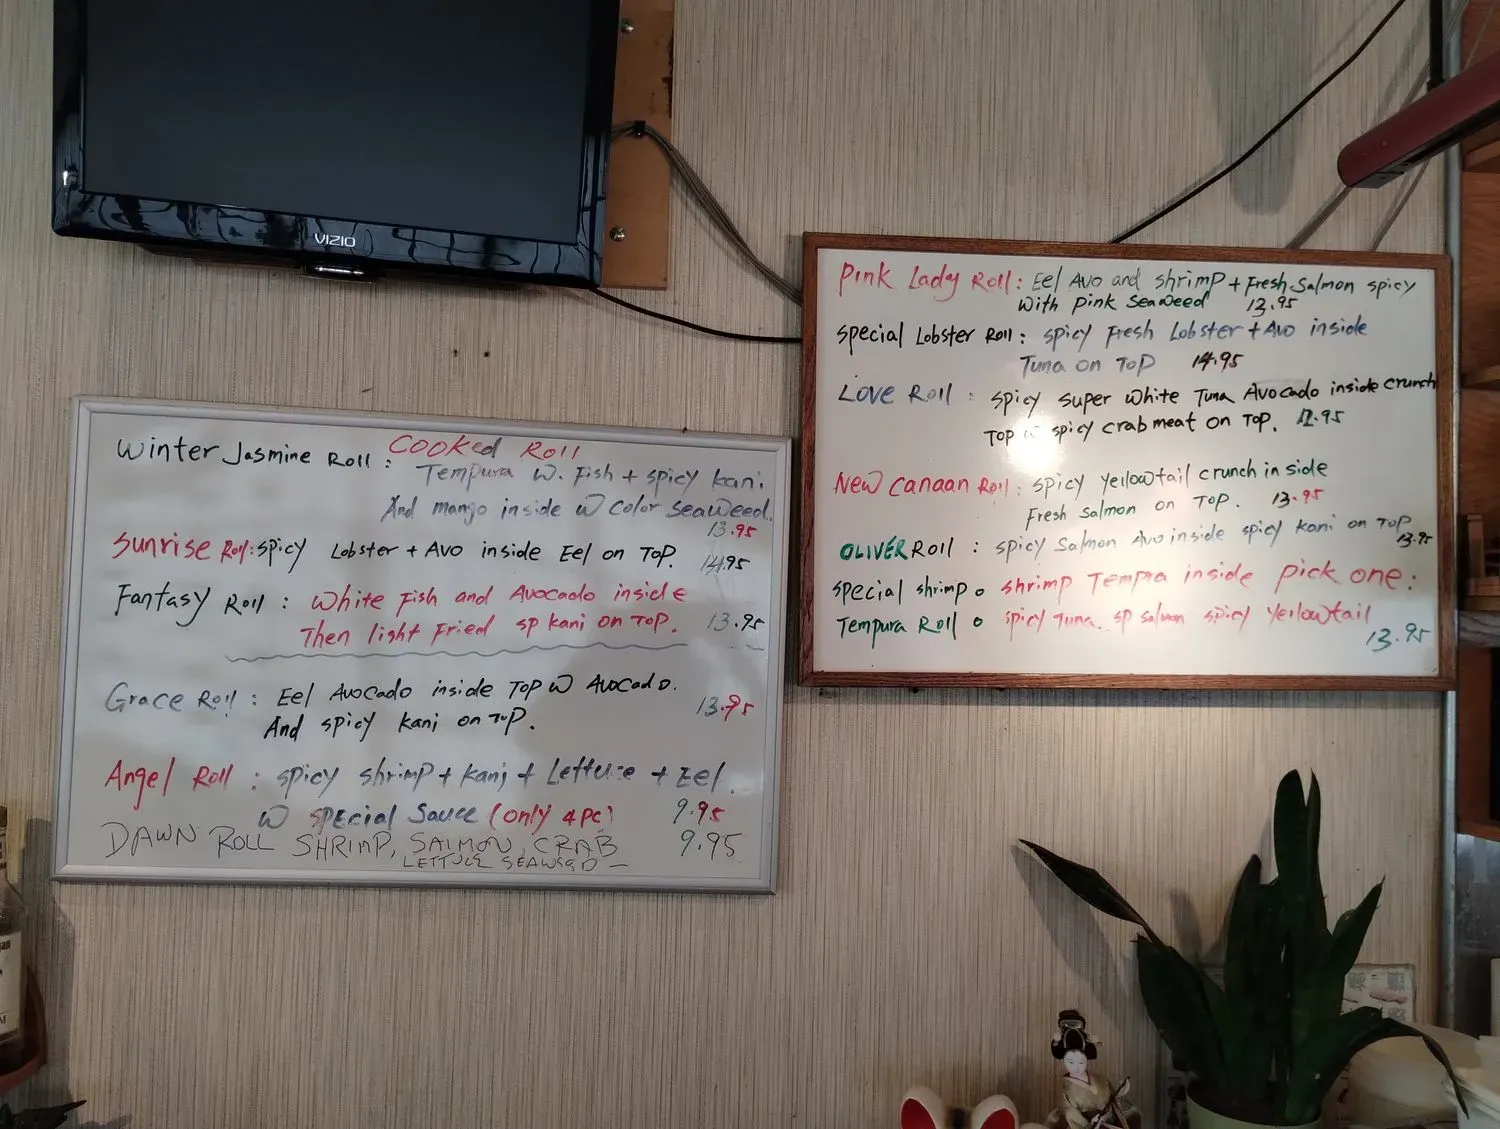 VIZIO
COOKED ROLL
Winter Jasmine Roll :
Tempura w. Fish + spicy kani
And mango inside w color seaweed.
13.95
Sunrise Roll: spicy Lobster + Avo inside Eel on Top. 14.95
Fantasy Roll : White Fish and Avocado inside
Then light Fried sp kani on Top. 13.95
Grace Roll : Eel Avocado inside Top w Avocado.
And spicy kani on Top. 13.95
Angel Roll : spicy shrimp + kani + Lettuce + Eel.
w special Sauce (only 4 pc) 9.95
DAWN ROLL SHRIMP, SALMON, CRAB 9.95
LETTUCE —
Pink Lady Roll : Eel Avo and shrimp + Fresh Salmon spicy
with pink seaweed 13.95
Special Lobster Roll : spicy Fresh Lobster + Avo inside
Tuna on Top 14.95
Love Roll : spicy super white Tuna Avocado inside crunch
Top w spicy crab meat on Top.
New Canaan Roll : spicy yellowtail crunch in side
Fresh Salmon on Top. 13.95
OLIVER Roll : spicy Salmon Avo inside spicy kani on Top
13.95
special shrimp : shrimp Tempra inside pick one :
Tempura Roll : spicy Tuna. sp salmon spicy Yellowtail
13.95